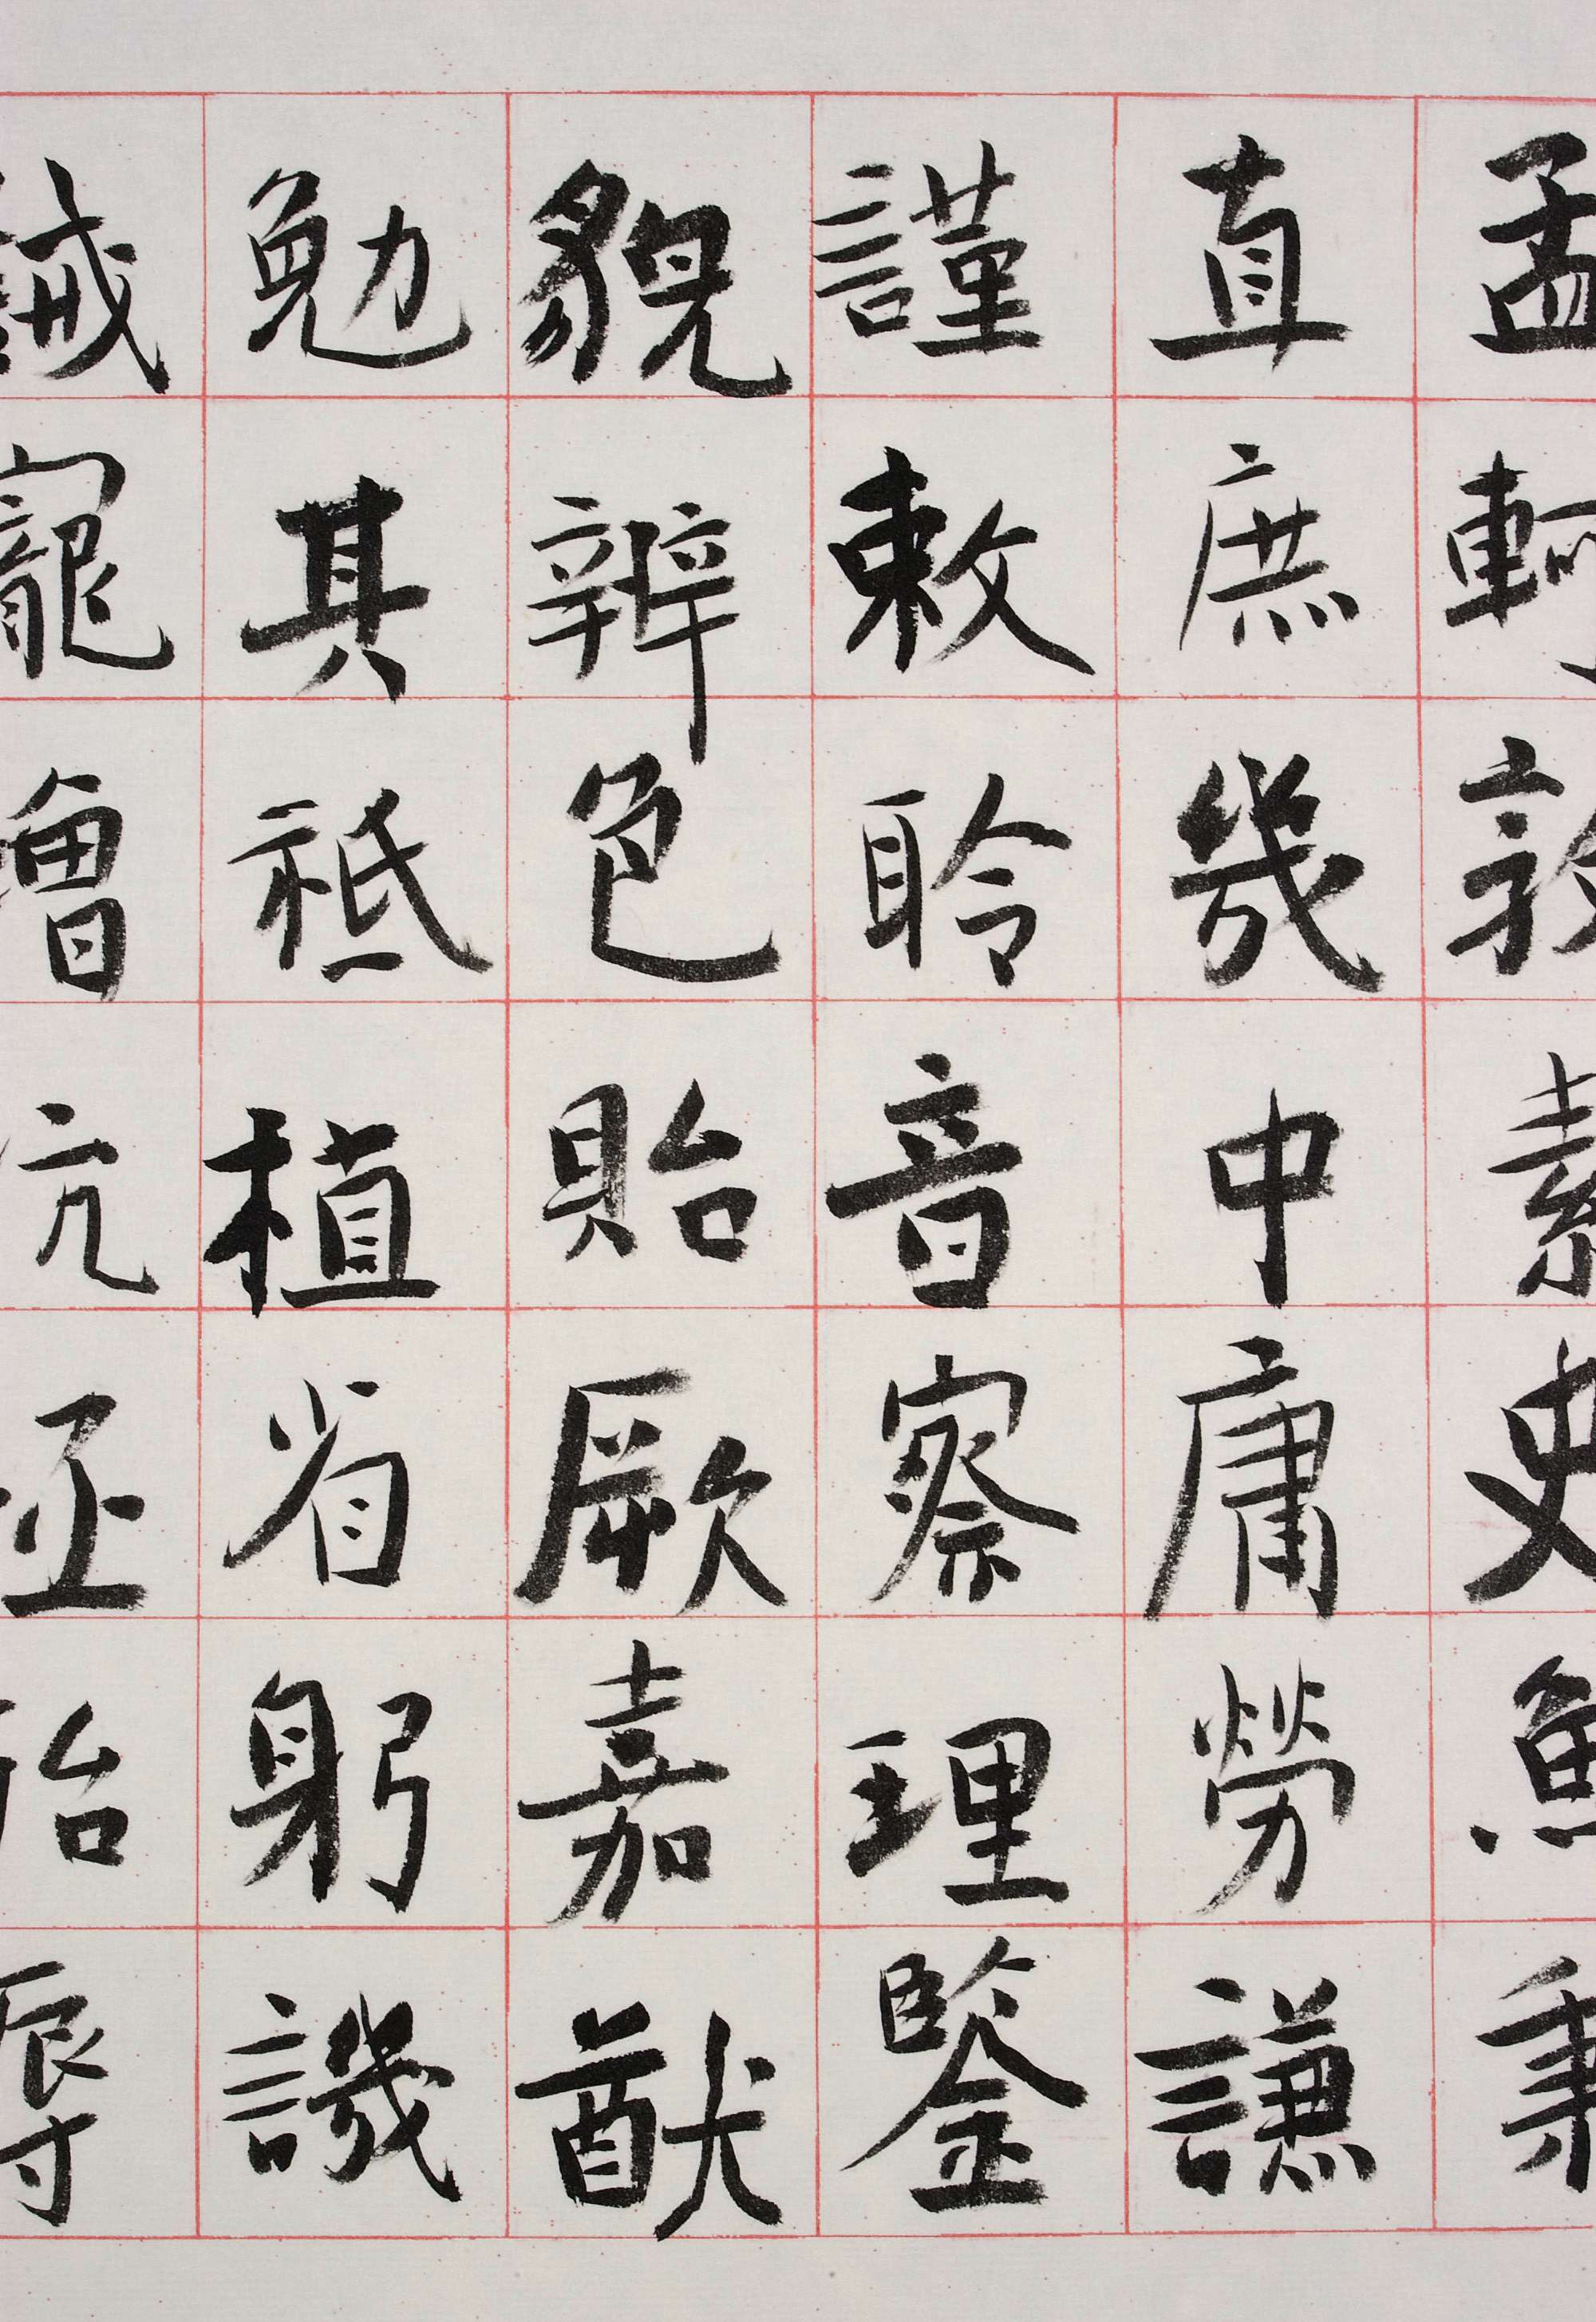 孟軻敦素史魚秉
直庶幾中庸勞謙
謹敕聆音察理鑒
貌辨色貽厥嘉猷
勉其祗植省躬譏
誡寵增亢極殆辱